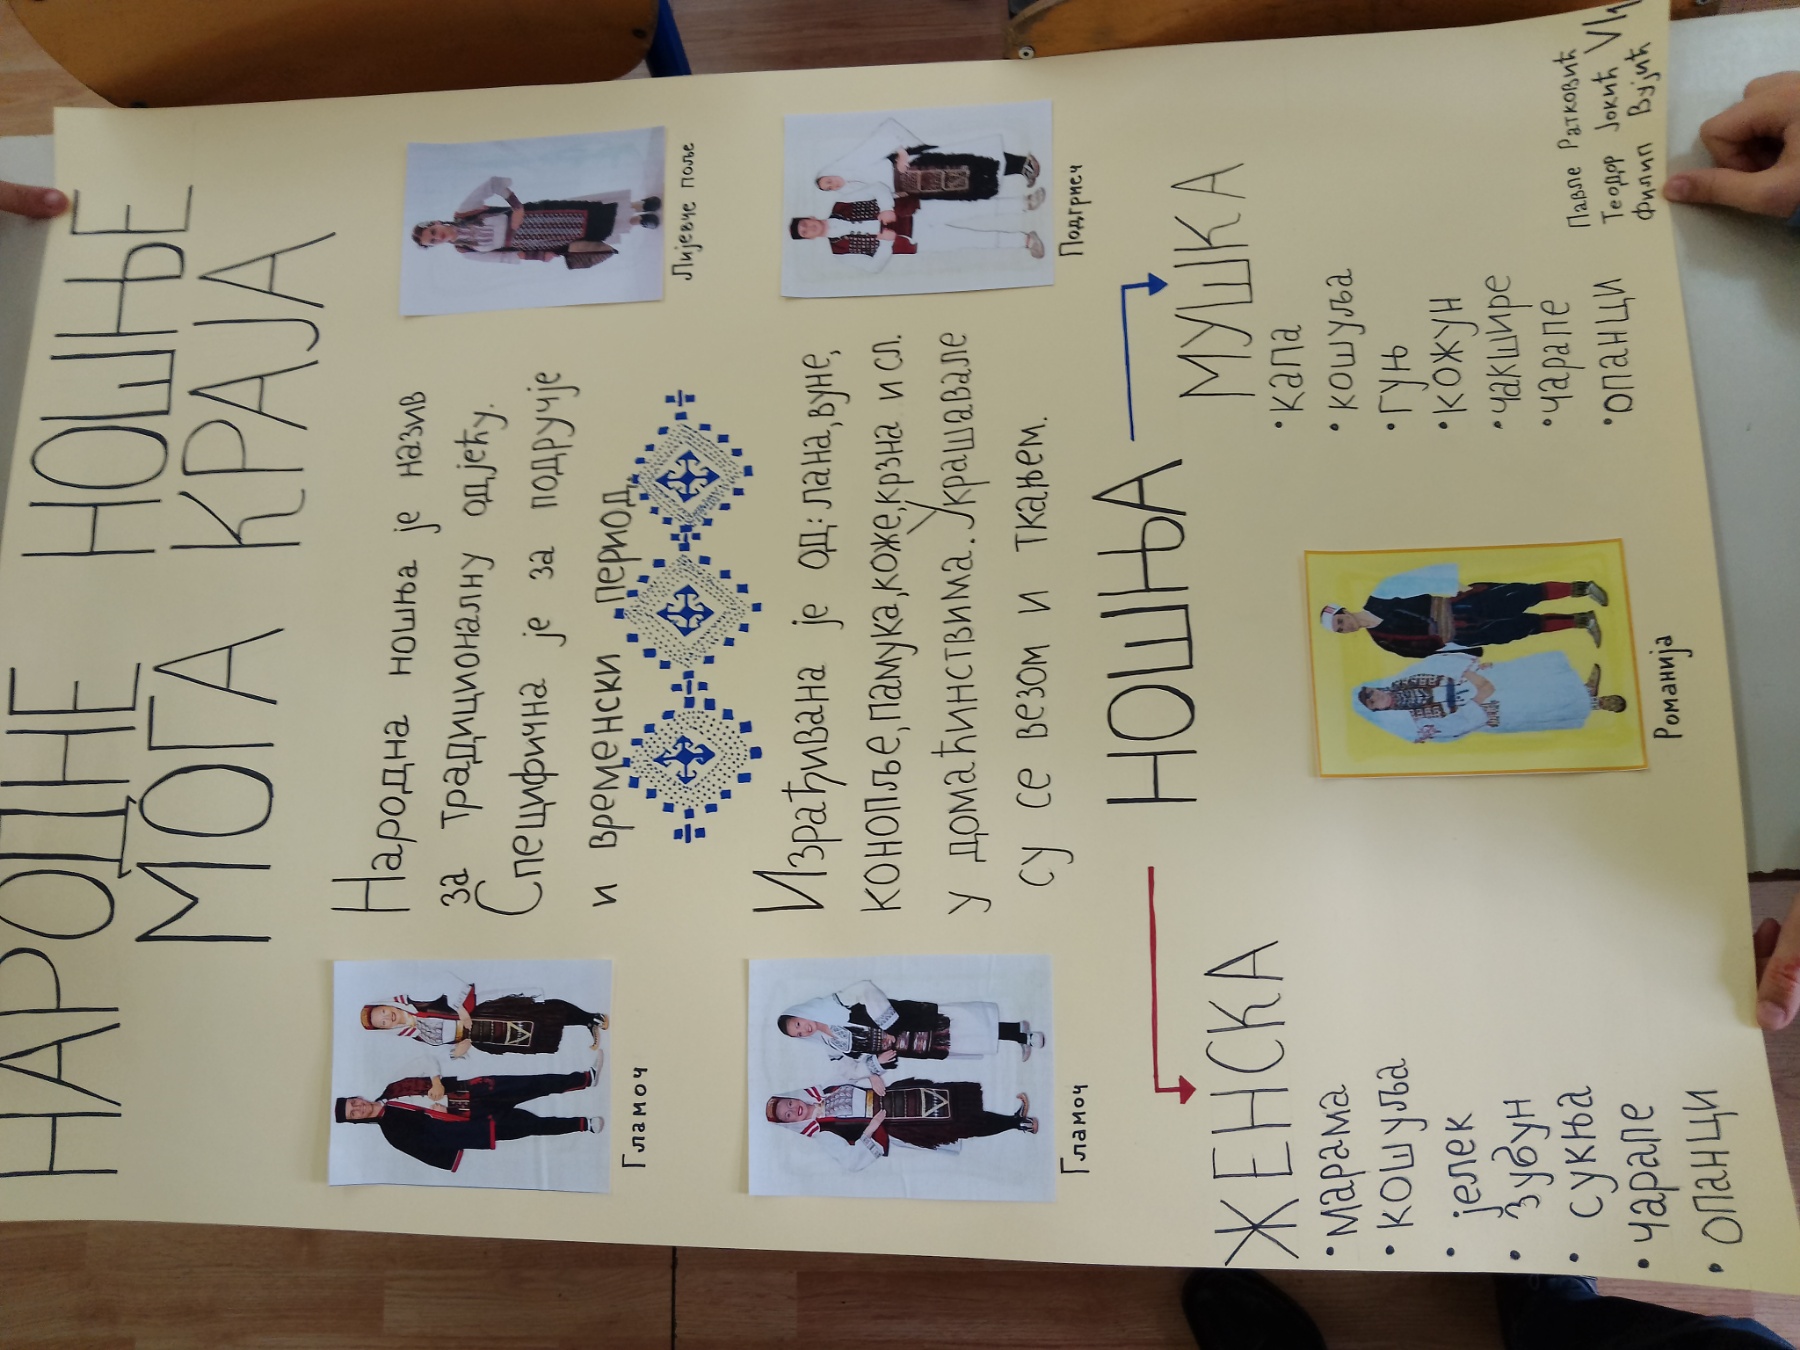 НАРОДНЕ НОШЊЕ
МОГА КРАЈА
Народна ношња је назив
за традиционалну одјећу.
Специфична је за подручје
и временски период.
Гламоч
Лијевче поље
Израђивана је од: лана, вуне,
конопље, памука, коже, крзна и сл.
у домаћинствима. Украшавале
су се везом и ткањем.
Гламоч
Подгриеч
НОШЊА
ЖЕНСКА
• марама
• кошуља
• јелек
• зубун
• сукња
• чарапе
• опанци
Романија
МУШКА
• капа
• кошуља
• гуњ
• кожун
• чакшире
• чарапе
• опанци
Павле Ратковић
Теодор Јокић
Филип Вујић